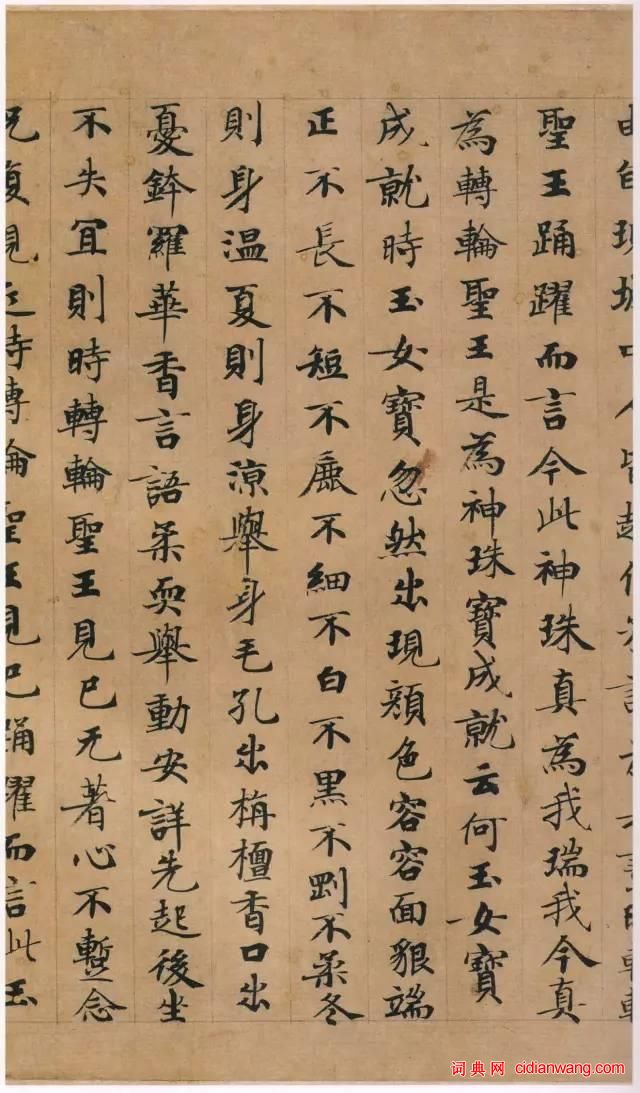 聖王踊躍而言今此神珠真為我瑞我今真
為轉輪聖王是為神珠寶成就云何玉女寶
成就時玉女寶忽然出現顏色容容面貌端
正不長不短不麁不細不白不黑不剛不柔冬
則身溫夏則身涼舉身毛孔出栴檀香口出
憂鉢羅華香言語柔耎舉動安詳先起後坐
不失宜則時轉輪聖王見已无著心不暫念
況復親近時轉輪聖王見已踊躍而言此玉
词典网 cidianwang.com